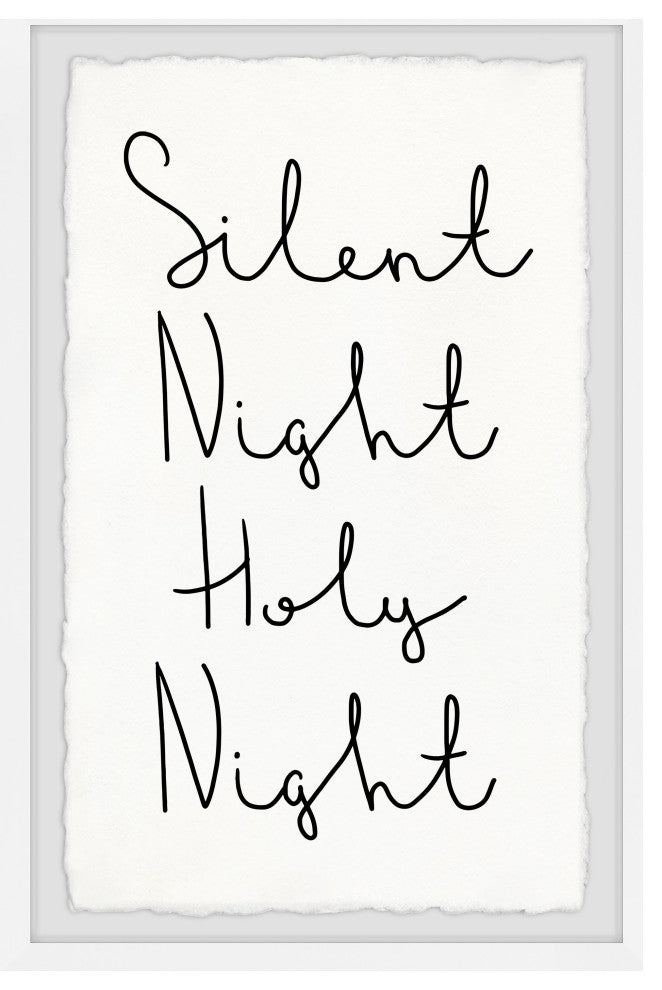 Silent
Night
Holy
Night